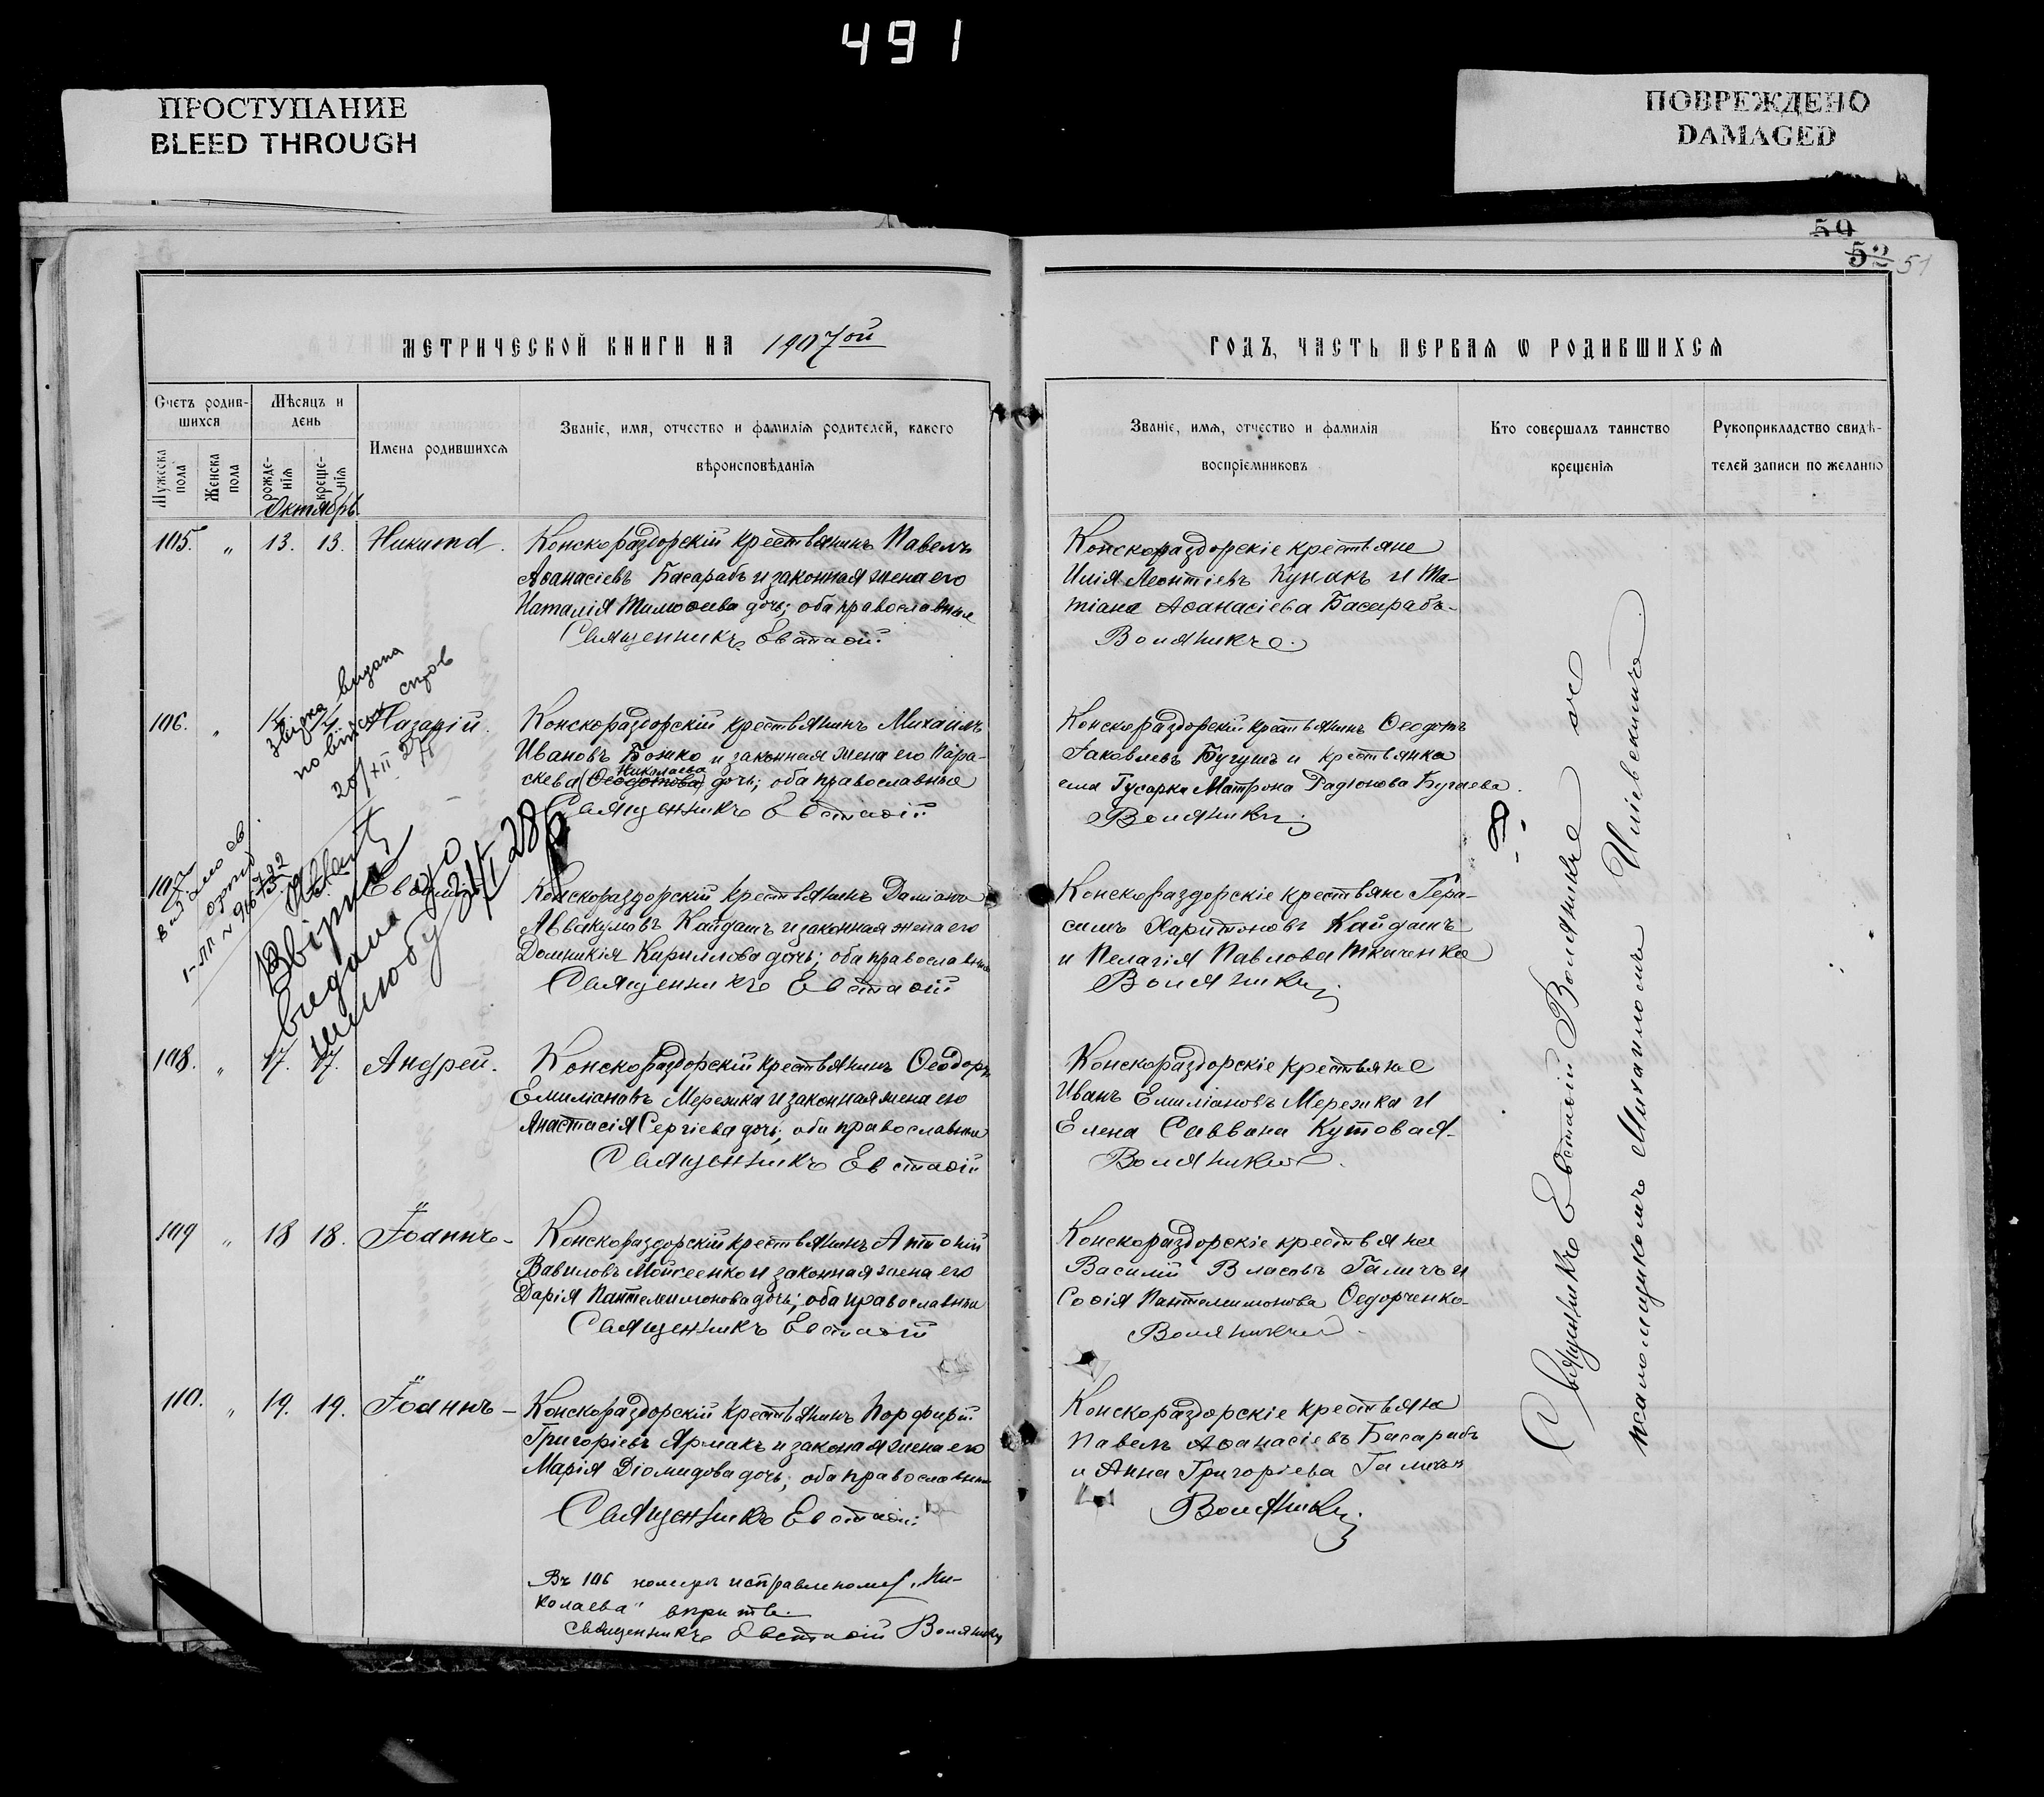 491
ПРОСТУПАНИЕ
BLEED THROUGH
ПОВРЕЖДЕНО
DAMAGED
50
52 51
МЕТРИЧЕСКОЙ КНИГИ НА 1907ой
ГОДЪ, ЧАСТЬ ПЕРВАЯ Ѡ РОДИВШИХСЯ
Счетъ родив-
шихся
Мужеска пола
Женска пола
Мѣсяцъ и
день
рожде-
нія
креще-
нія
Имена родившихся
Званіе, имя, отчество и фамилія родителей, какого
вѣроисповѣданія
Званіе, имя, отчество и фамилія
воспріемниковъ
Кто совершалъ таинство
крещенія
Рукоприкладство свидѣ-
телей записи по желанію
Октябрь.
105. „ 13. 13. Никита.
Конскораздорскій крестьянинъ Павелъ
Аѳанасіевъ Басарабъ и законная жена его
Наталія Тимоѳеева дочь; оба православные
Священникъ Евстаѳій
Конскораздорскіе крестьяне
Илія Леонтіевъ Кунакъ и Та-
тіана Аѳанасіева Басарабъ.
Воляникъ
106. „ Назарій.
Конскораздорскій крестьянинъ Михаилъ
Ивановъ Божко и законная жена его Пара-
скева (Ѳеодотова) Николаева дочь; оба православные
Священникъ Евстаѳій
Конскораздорскій крестьянинъ Ѳеодотъ
Іаковлевъ Бугушъ и крестьянка
села Гусарка Матрона Радіонова Бугаева.
Воляникъ
звірка видана
по військ справ
20/XII 27
видано
Звірка
видана до
шлюбу 28
Конскораздорскій крестьянинъ Даміанъ
Аввакумовъ Кайдашъ и законная жена его
Домникія Кириллова дочь; оба православные
Священникъ Евстаѳій
Конскораздорскіе крестьяне Гера-
симъ Харитоновъ Кайдашъ
и Пелагія Павлова Ткаченко
Воляникъ
108. „ 17. 17. Андрей.
Конскораздорскій крестьянинъ Ѳеодоръ
Емиліановъ Мережка и законная жена его
Анастасія Сергіева дочь; оба православные
Священникъ Евстаѳій
Конскораздорскіе крестьяне
Иванъ Емиліановъ Мережка и
Елена Саввина Кутовая
Воляникъ
109 „ 18 18. Іоаннъ
Конскораздорскій крестьянинъ Антоній
Вавиловъ Моисеенко и законная жена его
Дарія Пантелеимонова дочь; оба православные
Священникъ Евстаѳій
Конскораздорскіе крестьяне
Василій Власовъ Галичъ и
Софія Пантелеимонова Ѳедорченко
Воляникъ
110. „ 19. 19. Іоаннъ
Конскораздорскій крестьянинъ Порфирій
Григоріевъ Ярмакъ и законная жена его
Марія Діомидова дочь; оба православные
Священникъ Евстаѳій
Конскораздорскіе крестьяне
Павелъ Аѳанасіевъ Басарабъ
и Анна Григоріева Галичъ
Воляникъ
Въ 106 номерѣ исправленному „Ни-
колаева" вѣрить.
Священникъ Евстаѳій Воляникъ
Священникъ Евстаѳій Воляникъ съ
псаломщикомъ Михаиломъ Иліевскимъ